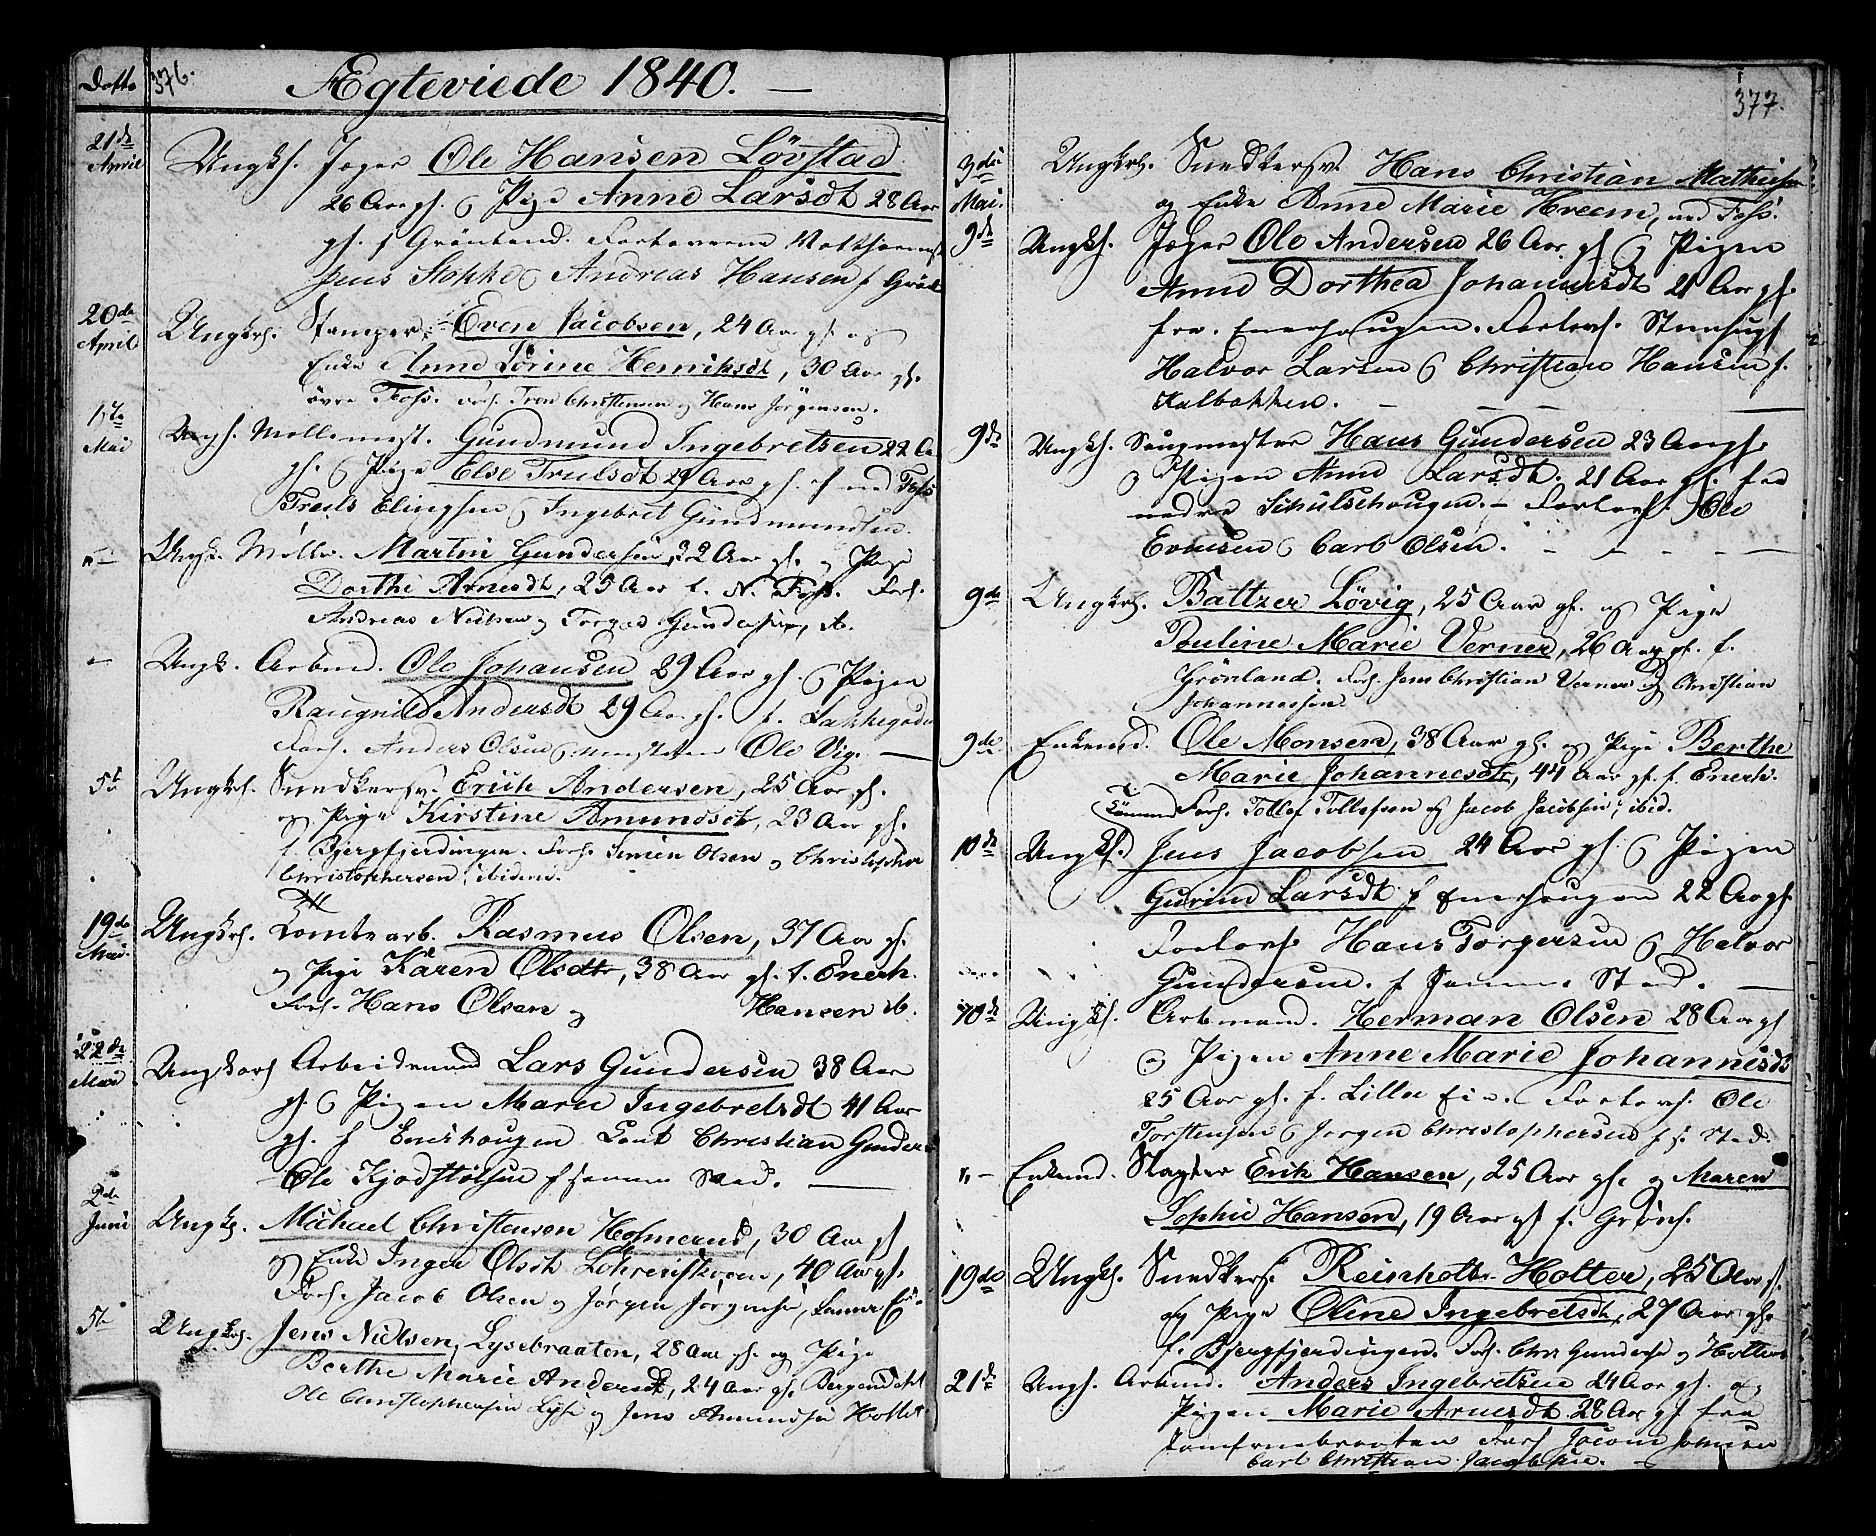 Datto 376. Ægteviede 1840. —
21de April Ungk. Jæger Ole Hansen Lövstad
26 Aar gl. & Pige Anne Larsdt 28 Aar
gl. f Grönland. Forloverne
Jens Stokke & Andreas Hansen f
20de April Ungkrl. Stamper Even Jacobsen, 24 Aar gl. og
Enke Anne Sörine Henriksdt, 30 Aar gl.
övre Foss. Forl. Tron Christensen og Hans Jörgensen.
1ste Mai Ungk. Möllemest. Gundmund Ingebretsen 22 A
gl. & Pige Else Trulsdt 29 Aar gl. f ned Foss
Truls Elingsen & Ingebret Gundmundsen
" — Ungk. Möller. Martin Gundersen 22 Aar gl. og Pige
Dorthe Arnesdt, 25 Aar f. N. Foss. Forl.
Andreas Nielsen og Torger Gundersen, ib.
— Ungk. Arbmd. Ole Johansen 29 Aar gl. & Pigen
Raugnild Andersdt 29 Aar gl. f. Lakkegaden
Forl. Anders Olsen & Ole Vig. —
5t Ungkrl. Snedkersv. Erich Andersen, 25 Aar gl.
og Pige Kirstine Amundsdt, 23 Aar gl.
f Bjergfjerdingen. Forl. Simen Olsen og Christopher
Christophersen, ibidem.
19de Mai. Ungkrl. Tomtearb. Rasmus Olsen, 37 Aar gl.
og Pige Karen Olsdtr, 38 Aar gl. f. Enerh.
Forl. Hans Olsen og Hansen ib.
22de Mai Ungkarl Arbeidsmand Lars Gundersen 38 Aar
gl & Pigen Maren Ingebretsdt 41 Aar
gl. f Enerhougen Christian Gunders
Ole Kjodstölsen f samme Sted. —
2de Juni Ungk. Michael Christensen Hofmerud, 30 Aar gl
og Enke Inger Olsdt Löhrenskoven, 40 Aar gl.
Forl. Jacob Olsen og Jörgen Jörgensen,
5te Ungkrl. Jens Nielsen, Lysebraaten, 28 Aar gl. og Pige
Berthe Marie Andersdt, 24 Aar gl.
Ole Christophersen Lyse og Jens Amundsen
377.
3die Mai. Ungkrl. Snedkersv. Hans Christian Mathiesen
og Enke Anne Marie Hveem, ned Foss.
9de Ungkl. Jæger Ole Andersen 26 Aar gl & Pigen
Anne Dorthea Johannesdt 21 Aar gl.
fra Enerhougen. Forlovs. Stenhug
Halvor Larsen & Christian Hansen f.
Kalbakken. — — —
9de Ungkl. Saugmester Hans Gundersen 23 Aar gl.
& Pigen Anne Larsdt. 21 Aar gl. fra
nedre Schulschougen. — Forlovs. Ole
Evensen & Carl Olsen. — — — —
9de Ungkrl. Baltzer Lövig, 25 Aar gl. og Pige
Pauline Marie Verner, 26 Aar gl. f.
Grönland. Forl. Jens Christian Verner og Christian
Johannessen
9de Enkemd. Ole Monsen, 38 Aar gl. og Pige Berthe
Marie Johannesdtr, 44 Aar gl. f. Enerh.
Forl. Tollef Tollefsen og Jacob Jacobsen, ibid.
10de Ungkl. Jens Jacobsen 24 Aar gl. & Pigen
Gurine Larsdt f Enerhougen 22 Aar gl.
Forlovs. Hans Torgersen & Halvor
Gundersen f samme Sted. —
10de Ungkl. Arbmand. Herman Olsen 28 Aar gl
& Pigen Anne Marie Johannesdt
25 Aar gl. f. Lilleeie. Forlovs. Ole
Torstensen & Jorgen Christophersen f s. Sted.
" — Enkemd. Slagter Erik Hansen, 25 Aar gl. og Maren
Sophie Hansen, 19 Aar gl f. Grönl.
19de Ungkl. Snedkers. Reinholt Holter, 25 Aar gl.
og Pige Oline Ingebretsdt, 27 Aar gl.
f. Bjergfjerdingen. Forl. Chr Gundersen og Holter
21de Ungk. Arbmd. Anders Ingebretsen 24 Aar gl. og
Pigen Marie Arnesdt 28 Aar gl fra
Jomfruebraaten Forl Johnsen
Carl Christian Jacobsen. —